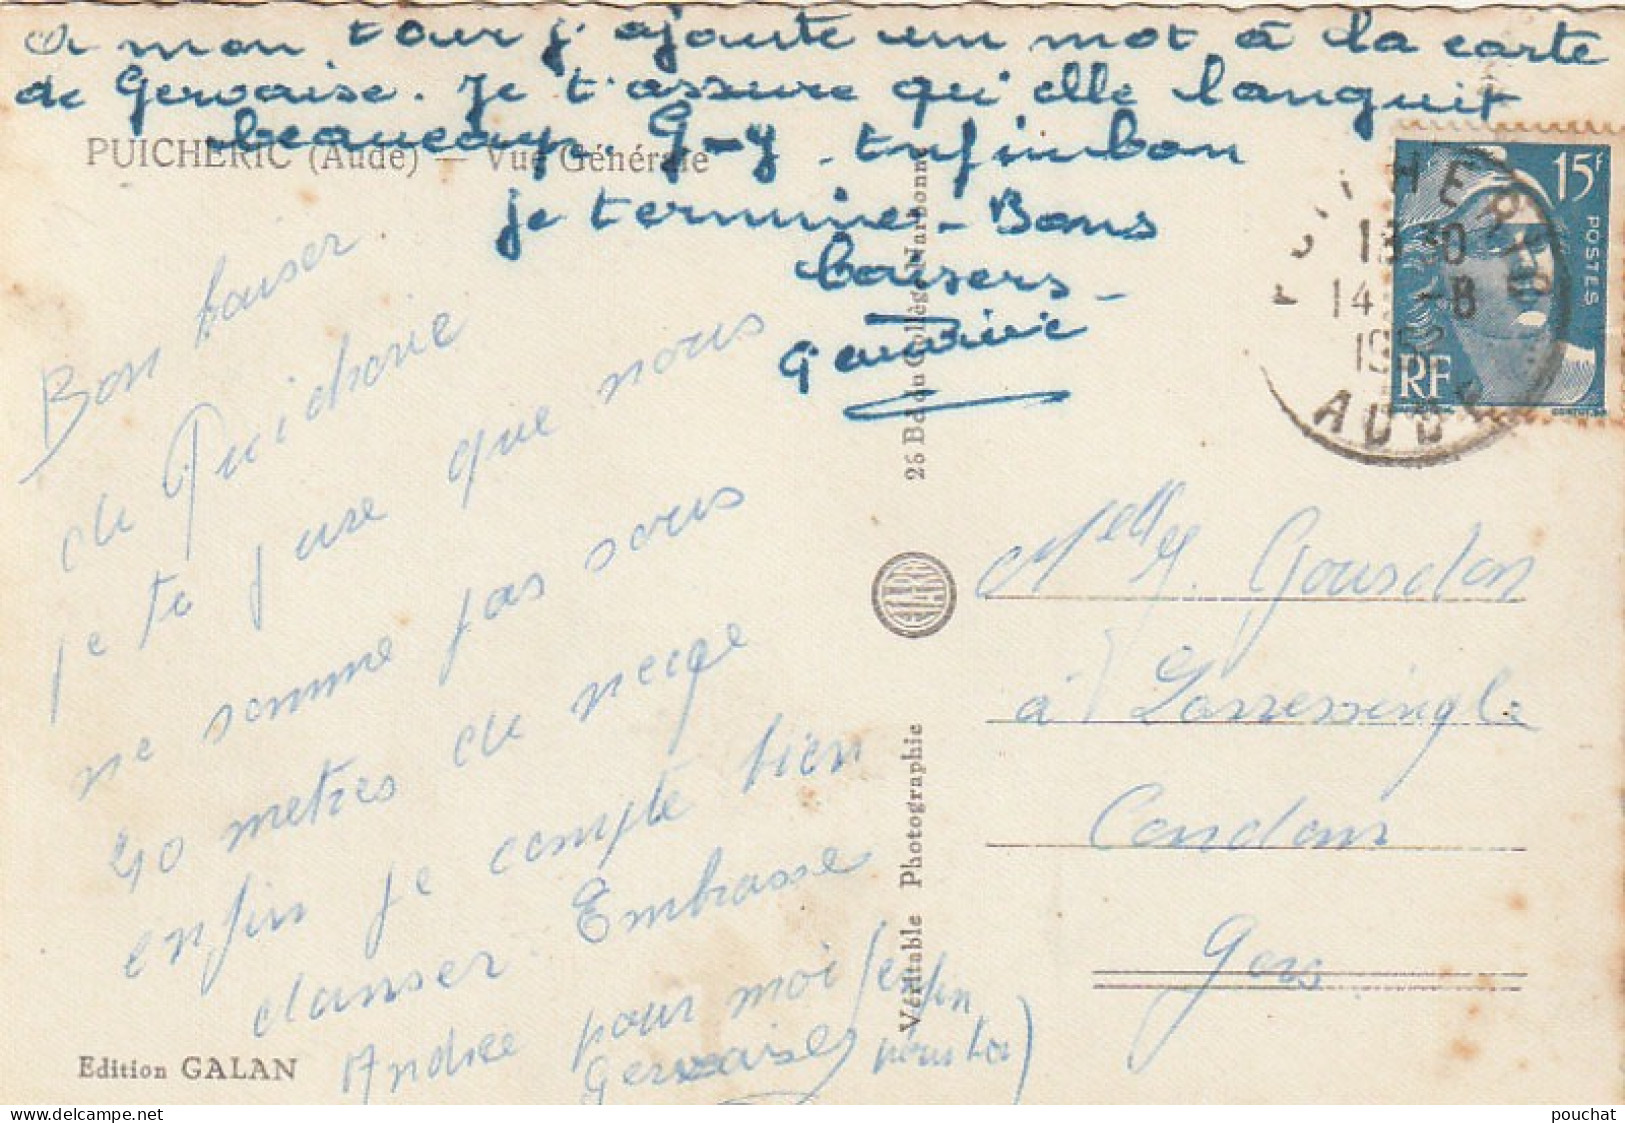 A mon tour j'ajoute un mot à la carte
de Gervaise. Je t'assure qu'elle languit
beaucoup. G-y. Enfin bon
je termine - Bons
baisers -
PUICHERIC (Aude) — Vue Générale
Bon baiser
de Puicheric
je te jure que nous
ne somme pas sous
40 metres de neige
enfin je compte bien
danser. Embrasse
Andrée pour moi (enfin
Gervaise pour toi)
Edition GALAN
Véritable Photographie
26 Bd du Collège Narbonne
15f
POSTES
RF
18 30
14 -8
195
AUDE
Melle Y. Gousdon
à Larressingle
Condom
Gers
pouchat